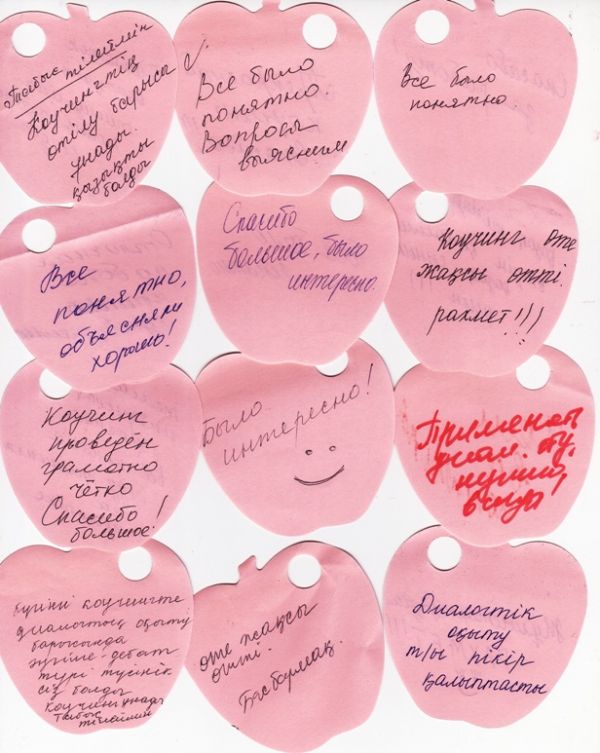 Табыс тілеймін
Коучингтің
өтілу барысы
ұнады.
қызықты
болды
Все было
понятно.
Вопросы
выяснили
Все было
понятно.
Все
понятно,
объясняли
хорошо!
Спасибо
большое, было
интересно.
Коучинг өте
жақсы өтті.
рахмет!!!
Коучинг
проведён
грамотно
чётко
Спасибо!
большое.
Было
интересно!
Применять
диал. обуч.
нужно
всегда!
Бүгінгі коучингте
диалогтық оқыту
барысында
жүгіне-дебат
түрі түсінік
сіз болды
Коучинг ұнады
Табыс
тілеймін
өте жақсы
өтті.
Бас бармақ.
Диалогтік
оқыту
т/ы пікір
қалыптасты